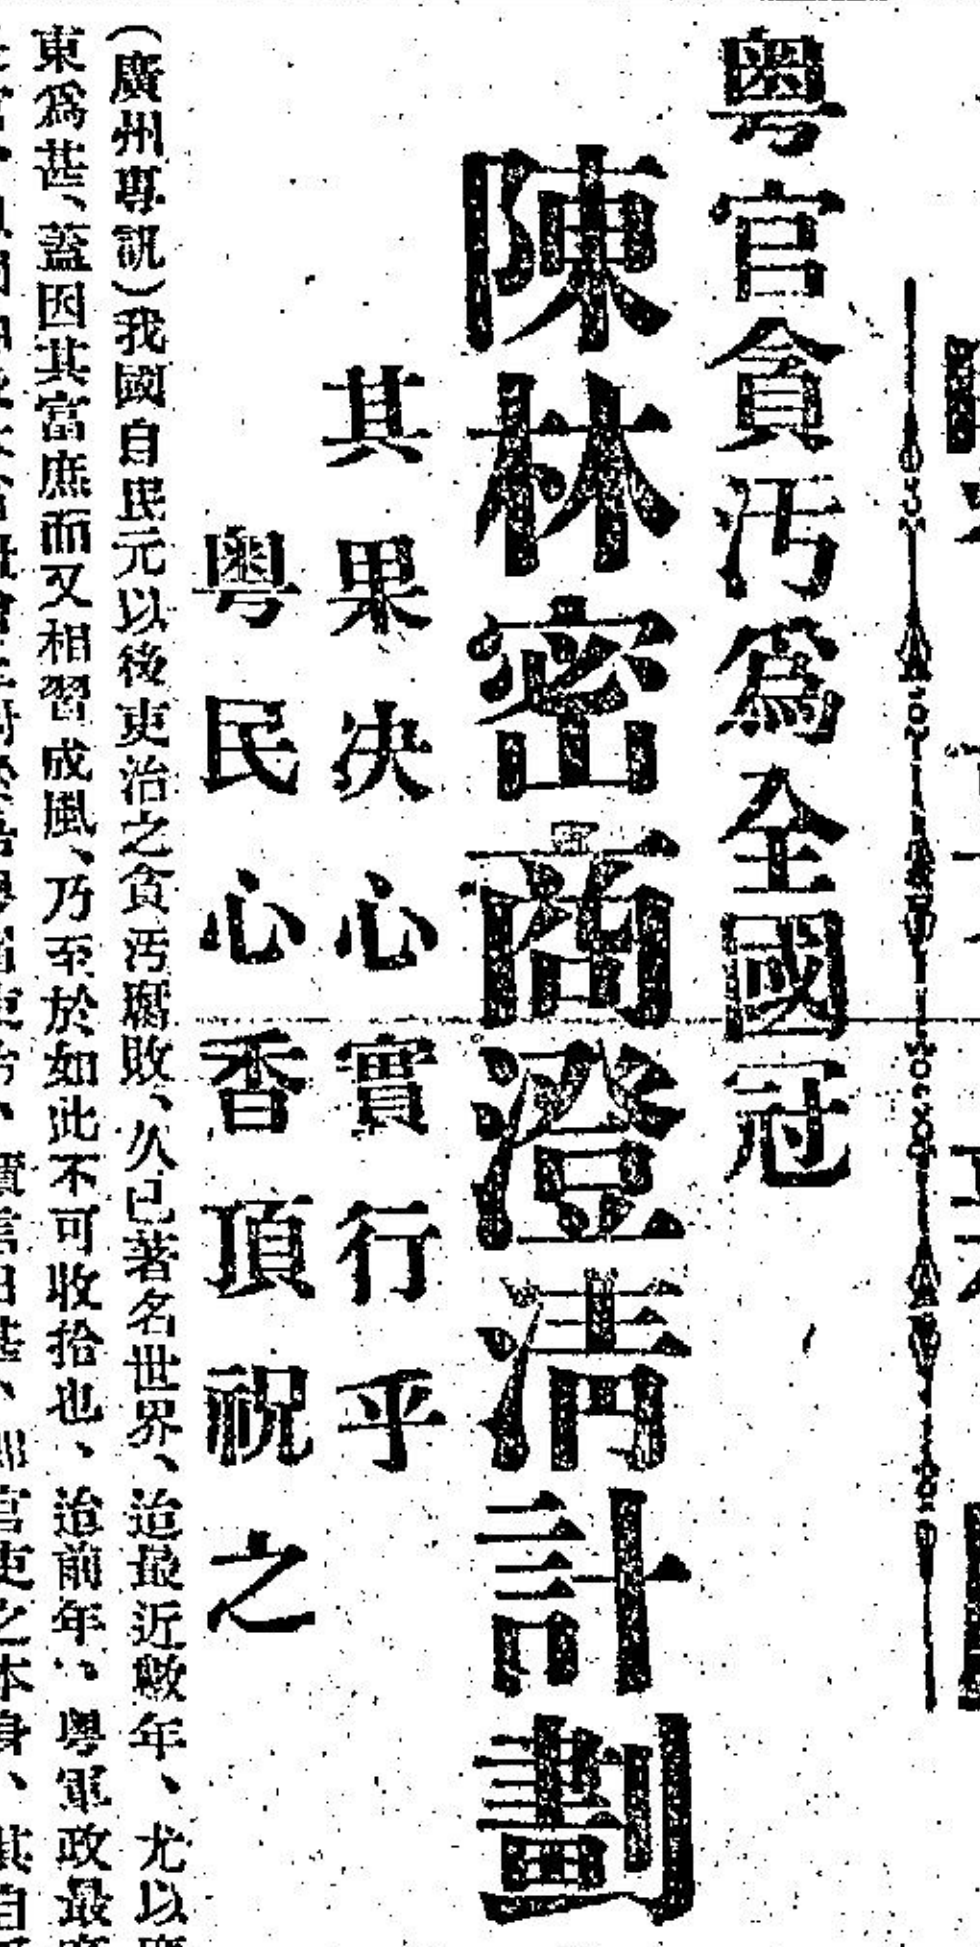 粤官貪汚爲全國冠
陳林密商澄清計劃
其果决心實行乎
粤民心香頂祝之
(廣州專訊)我國自民元以後吏治之貪汚腐敗、久已著名世界、迨最近數年、尤以廣
東爲甚、蓋因其富庶而又相習成風、乃至於如此不可收拾也、迨前年、粤軍政最高
官吏之本身、其自